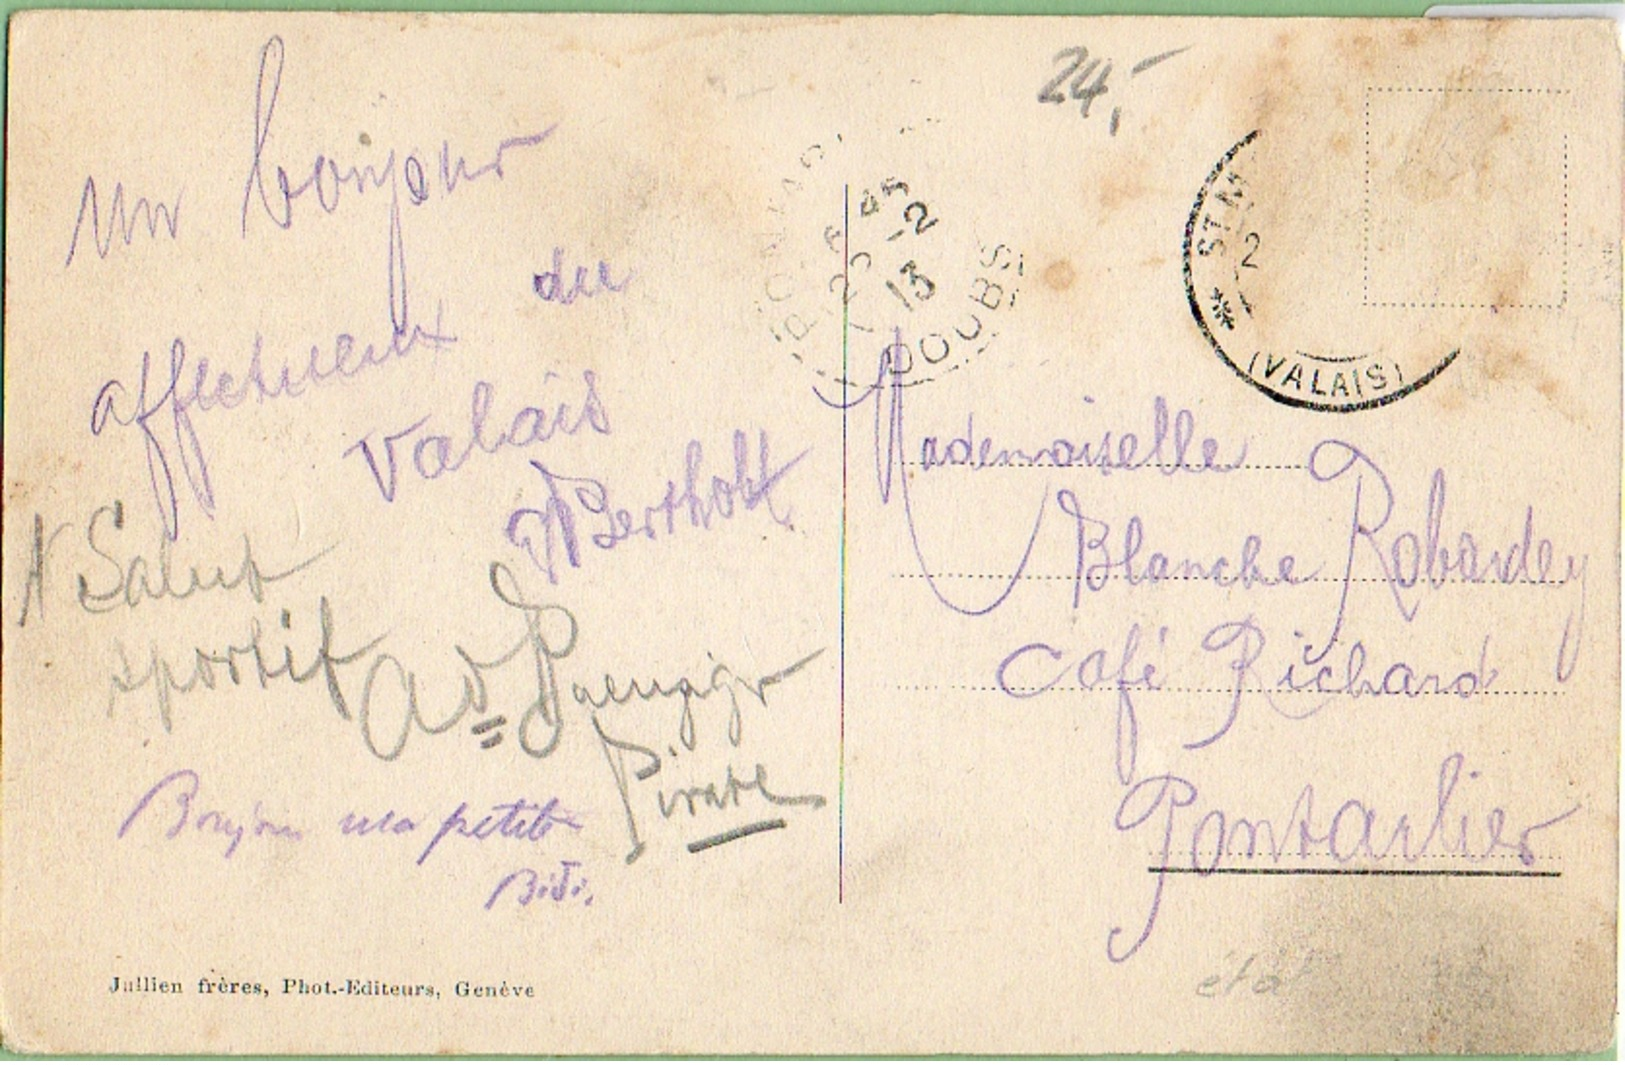 un bonjour
affectueux du
Valais
Berthold
Salut
sportif Ad
Pirate
Bonjour ma petite
Bibi.
Jullien frères, Phot.-Editeurs, Genève
24,-
25 -2
13
DOUBS
ST M
2
(VALAIS)
Mademoiselle
Blanche Robardey
Café Richard
Pontarlier
état